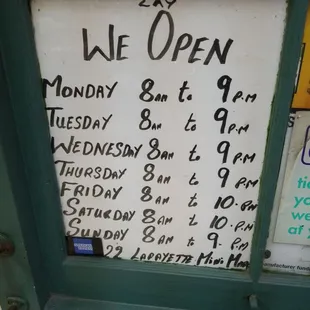 WE OPEN
MONDAY 8AM to 9P.M
TUESDAY 8AM to 9P.M
WEDNESDAY 8AM to 9P.M
THURSDAY 8AM to 9P.M
FRIDAY 8AM to 10.P.M
SATURDAY 8AM to 10.P.M
SUNDAY 8AM to 9.P.M
22 LAFAYETTE MINI MAR